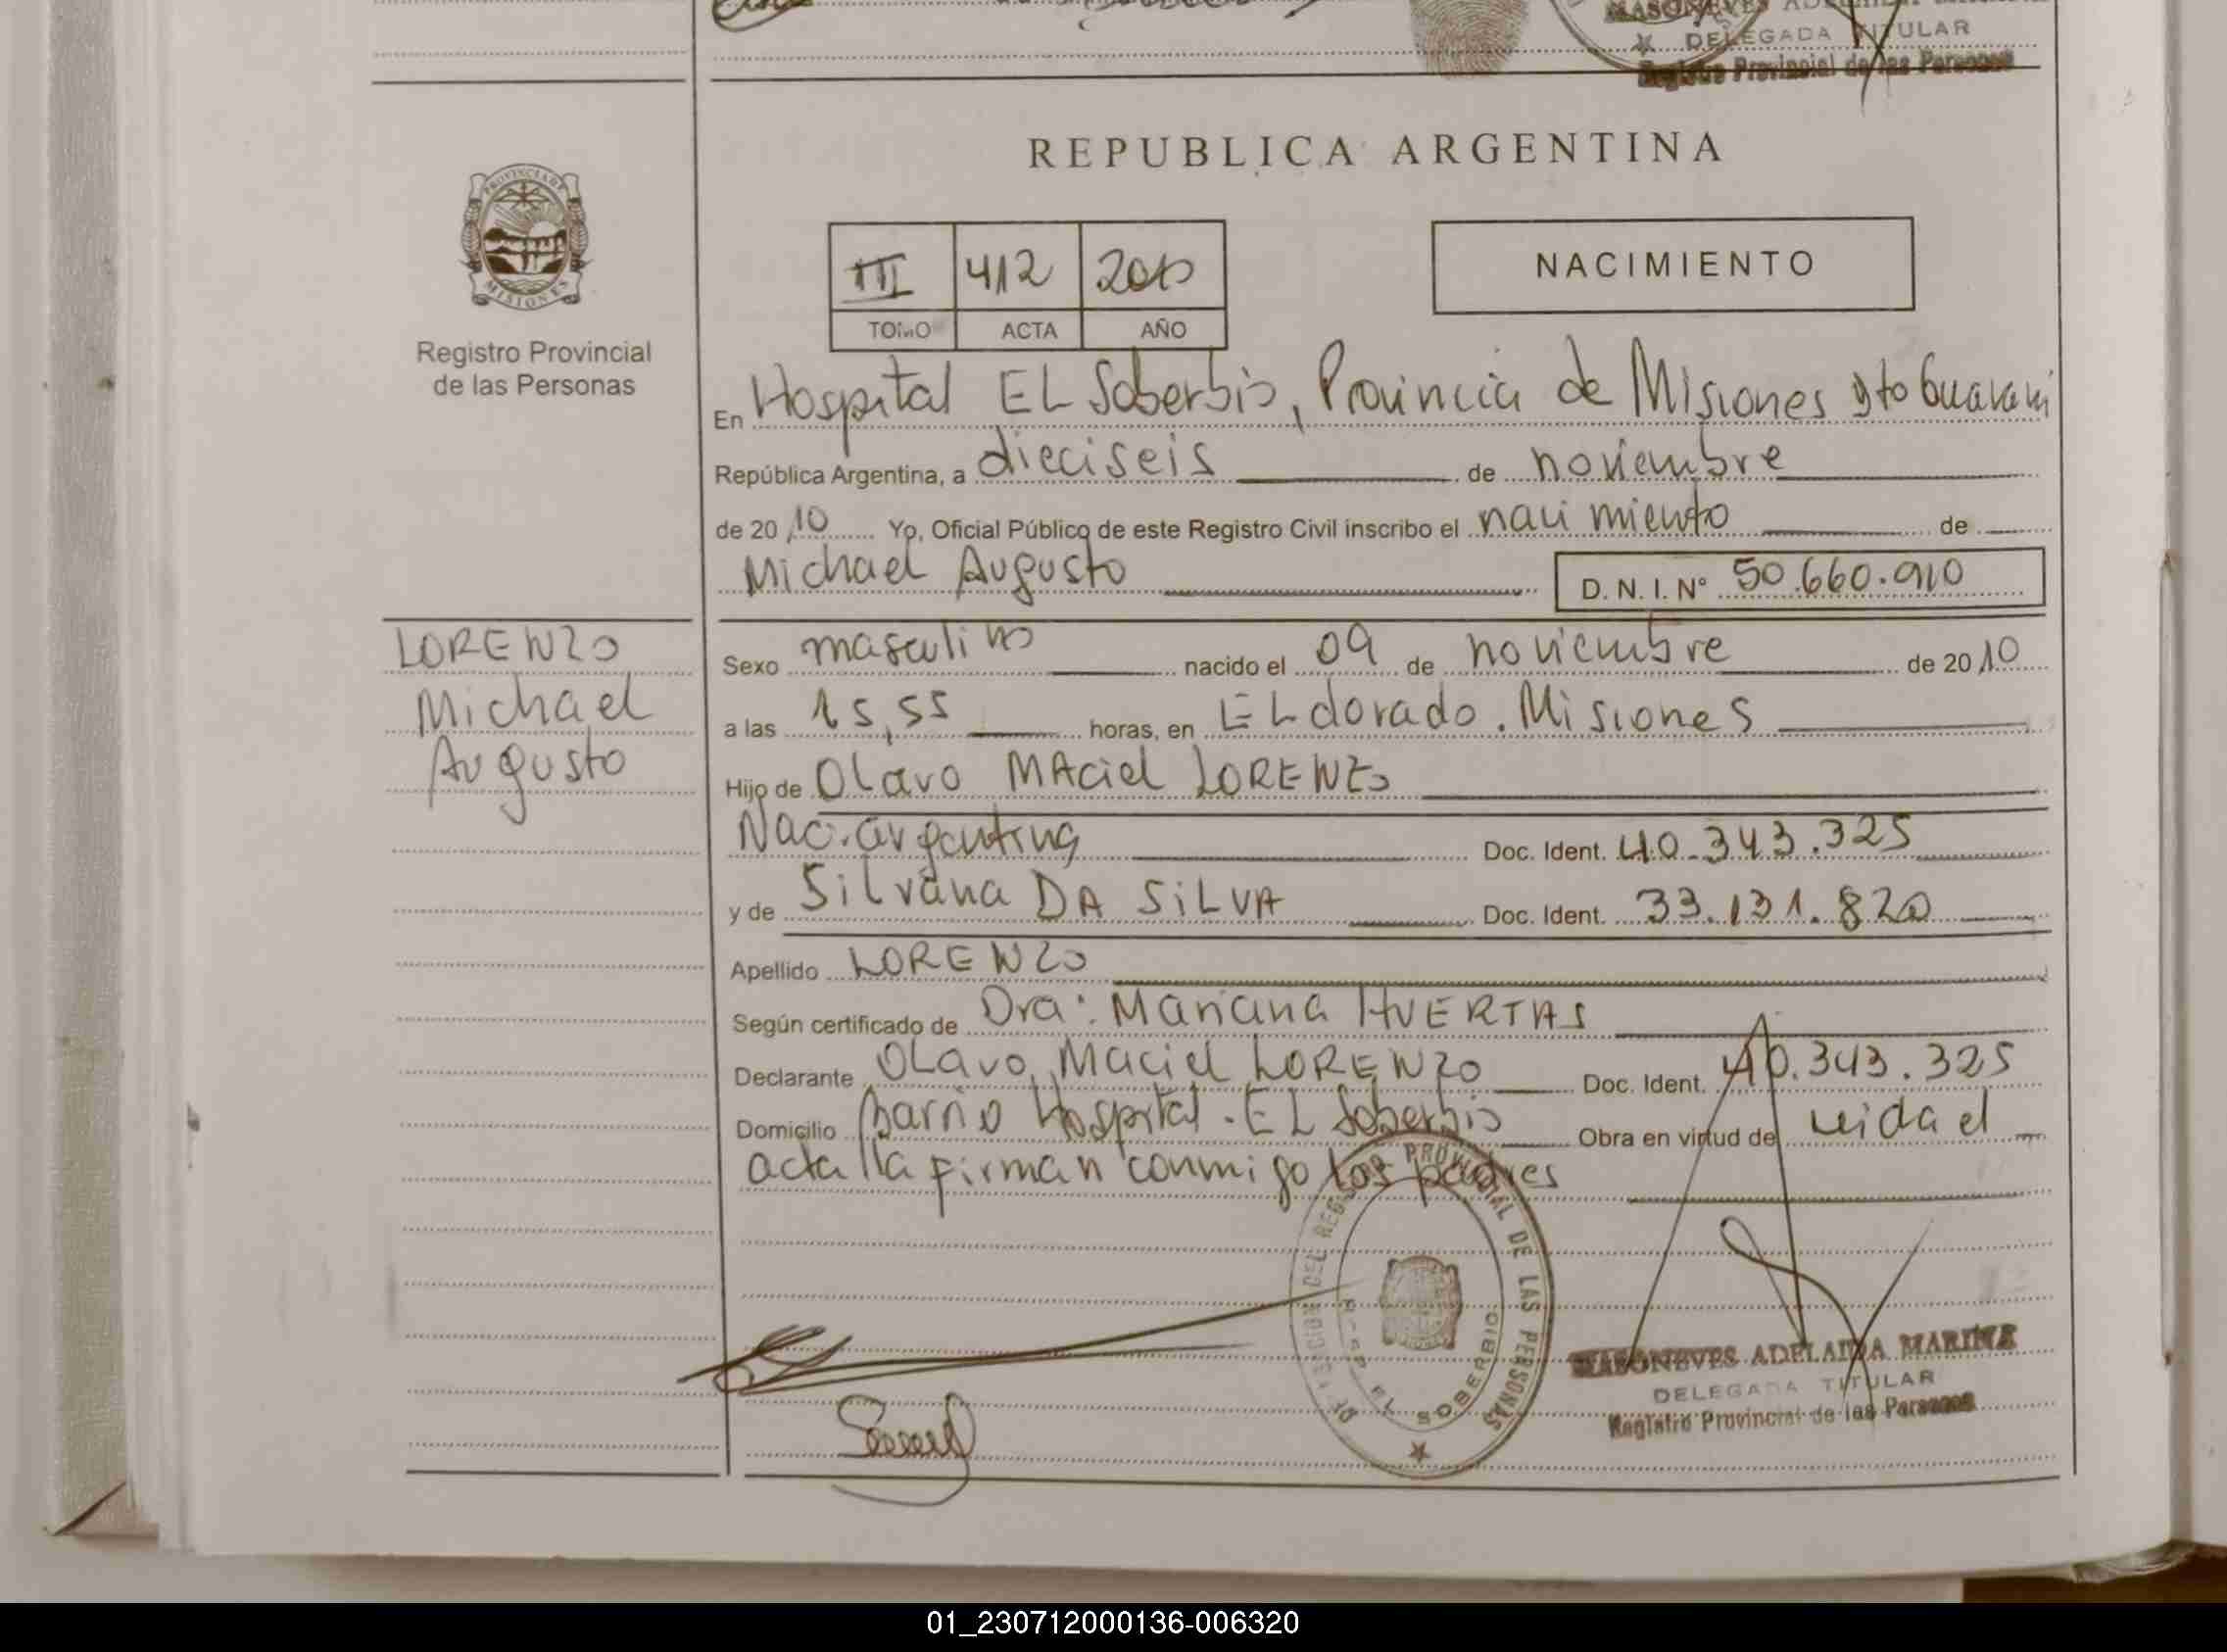 DELEGADA TITULAR
Registro Provincial de las Personas
REPUBLICA ARGENTINA
PROVINCIA DE
MISIONES
Registro Provincial
de las Personas
III 412 2010
TOMO ACTA AÑO
NACIMIENTO
En Hospital EL Soberbio, Provincia de Misiones Dto Guarani
República Argentina, a dieciseis de noviembre
de 20 10 Yo, Oficial Público de este Registro Civil inscribo el nacimiento de
Michael Augusto D. N. I. N° 50.660.910
LORENZO
Michael
Augusto
Sexo masculino nacido el 09 de noviembre de 20 10
a las 15,55 horas, en ELdorado. Misiones
Hijo de Olavo MAciel LORENZO
Nac. argentina Doc. Ident. 40.343.325
y de Silvana DA SiLVA Doc. Ident. 33.131.820
Apellido LORENZO
Según certificado de Dra: Mariana HUERTAS
Declarante OLavo Maciel LORENZO Doc. Ident. 40.343.325
Domicilio Barrio Hospital. EL Soberbio Obra en virtud de Leida el
acta la firman conmigo los padres
DELEGACION DEL REGISTRO PROVINCIAL DE LAS PERSONAS
EL SOBERBIO
MASONEVES ADELAIDA MARINE
DELEGADA TITULAR
Registro Provincial de las Personas
01_230712000136-006320